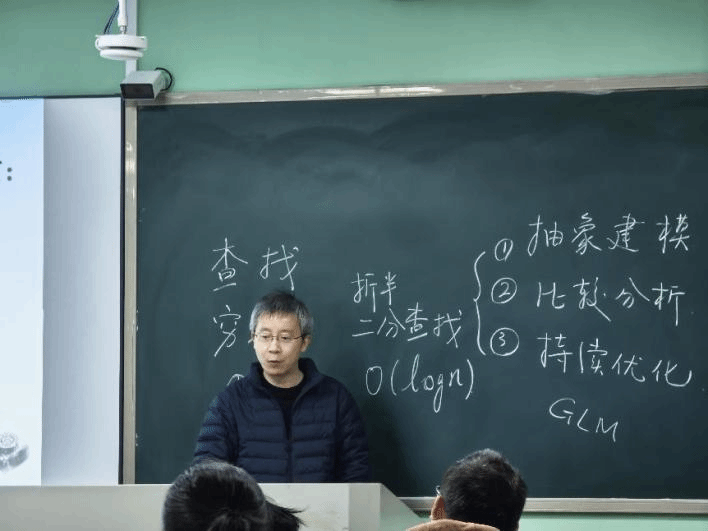 查找
穷
折半
二分查找
O(logn)
① 抽象建模
② 比较分析
③ 持续优化
GLM